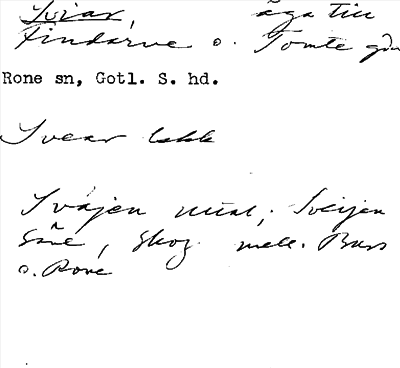 Sviar, äga till
Findarve o. Tomte går
Rone sn, Gotl. S. hd.
Svear
Svajen ; Sveijen
skog mell. Burs
o. Rone